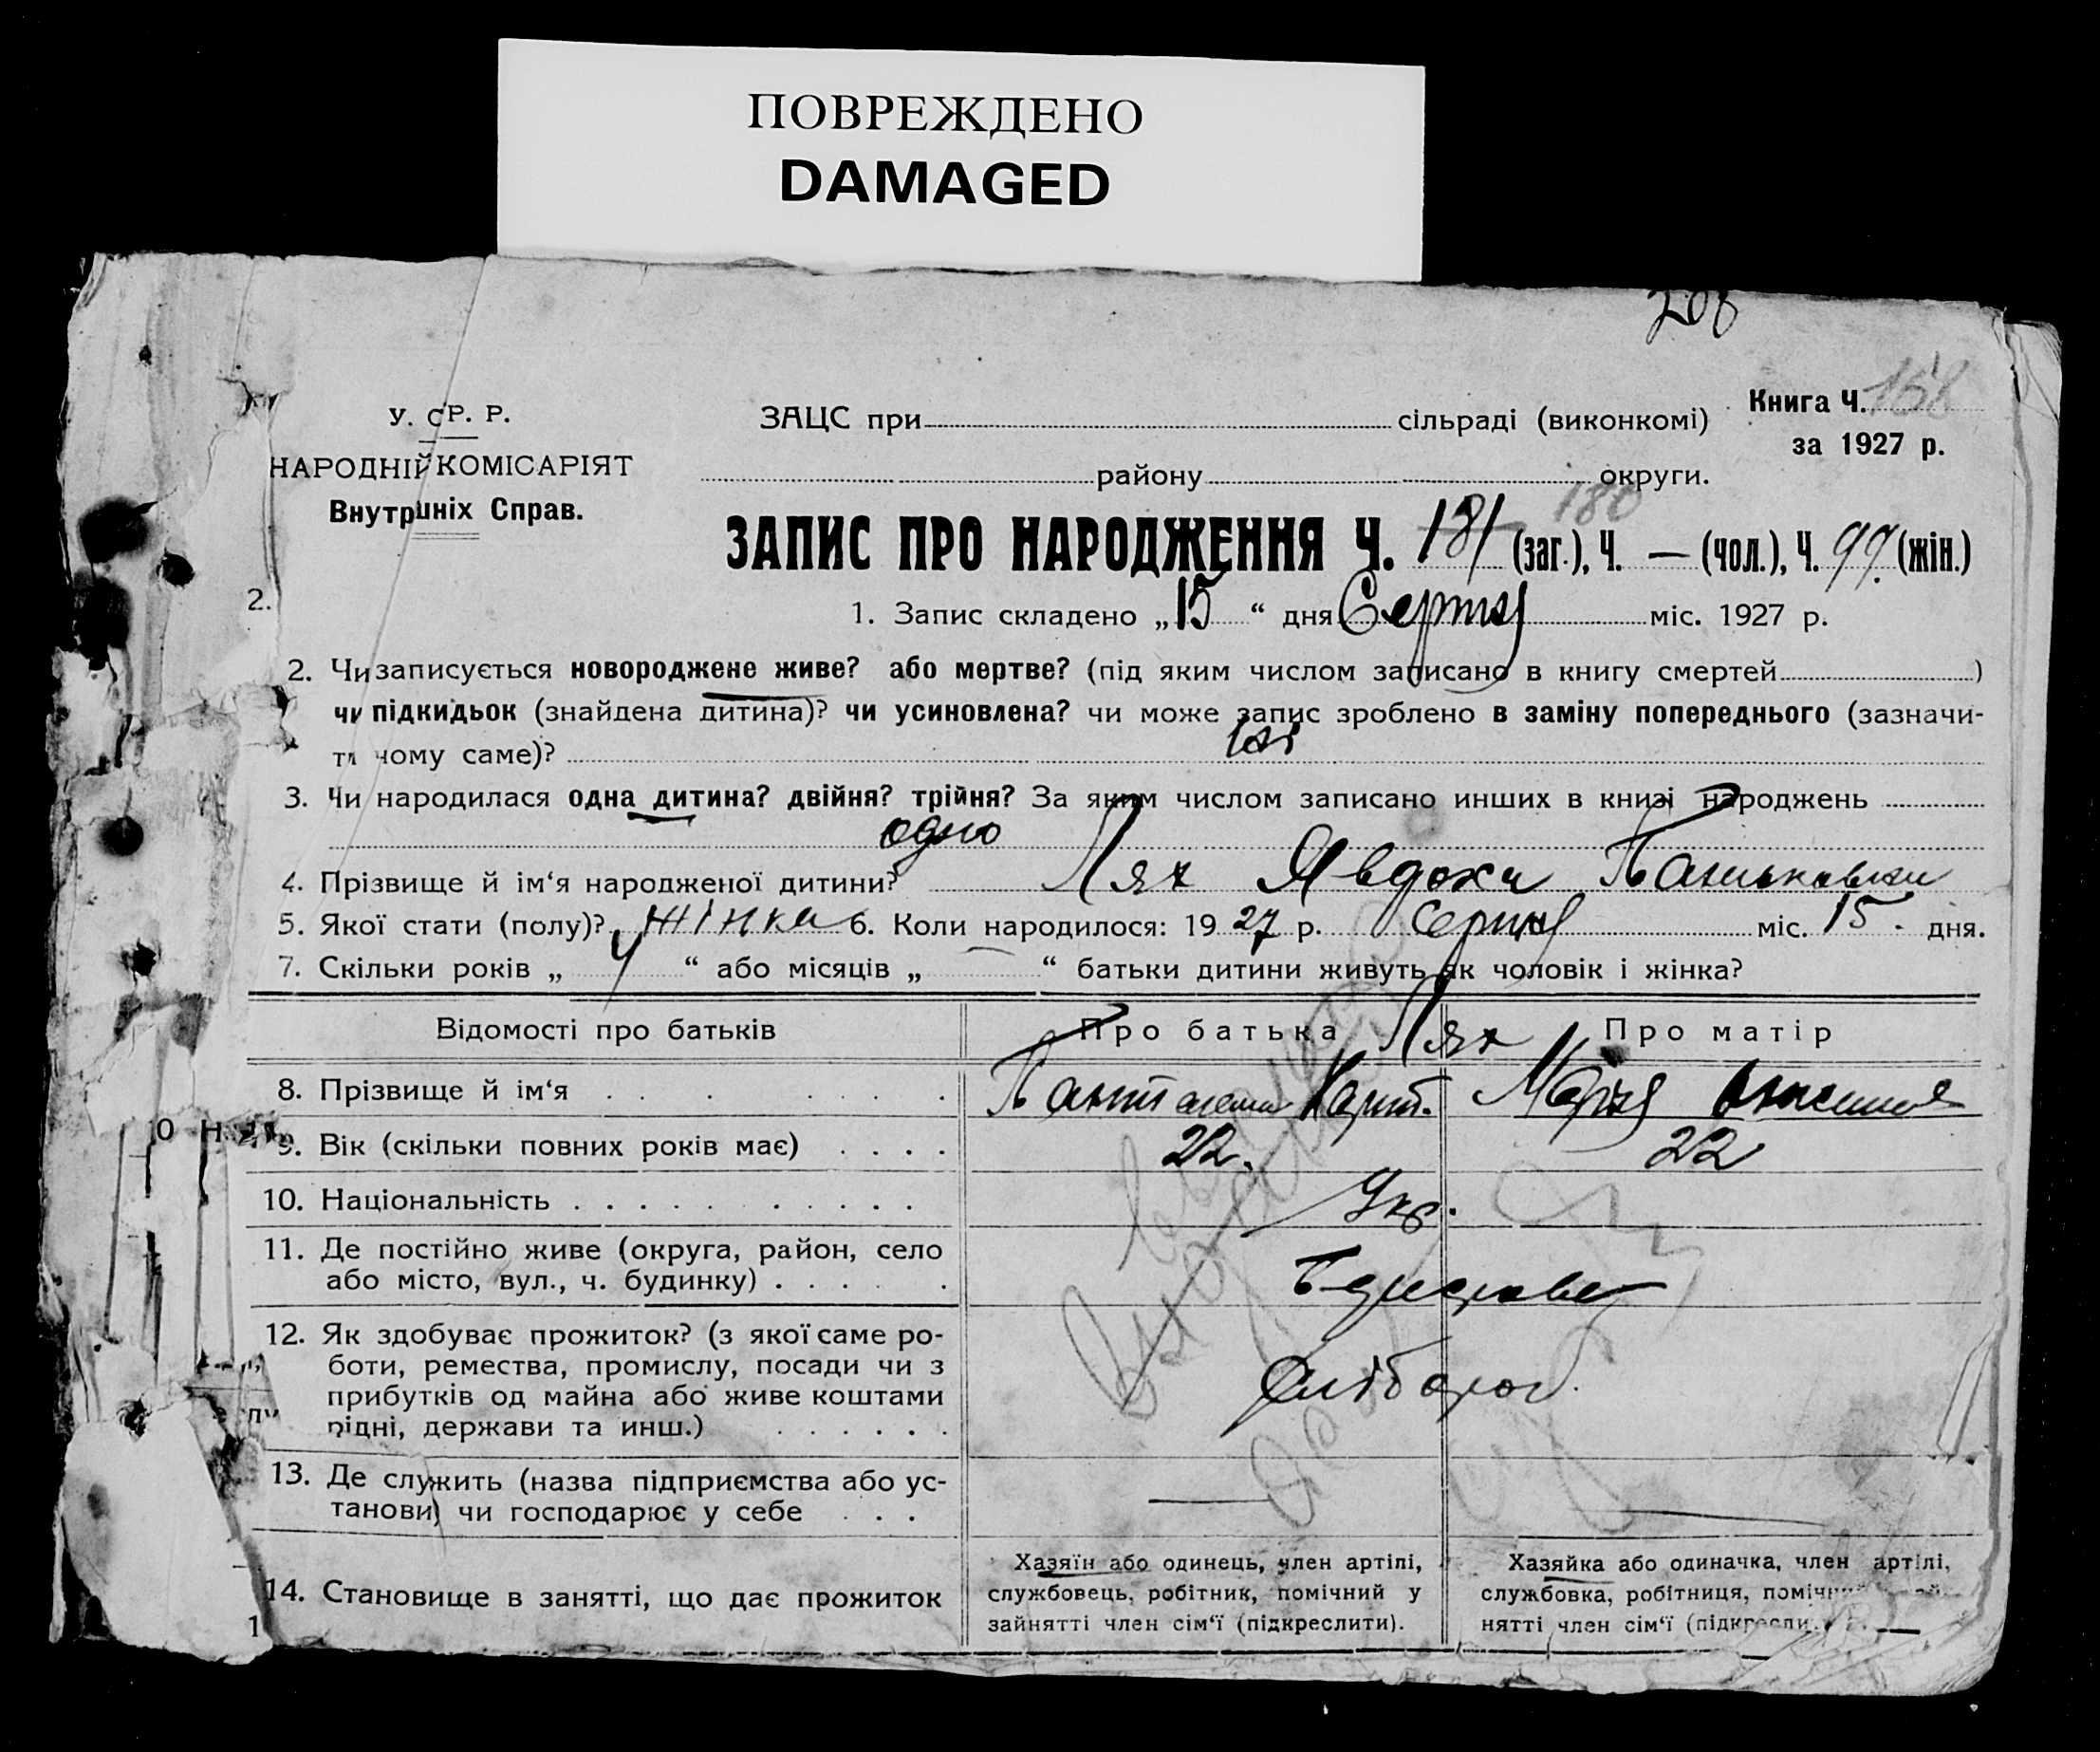 ПОВРЕЖДЕНО
DAMAGED
208
У. С. Р. Р.
НАРОДНІЙ КОМІСАРІЯТ
Внутрішніх Справ.
ЗАЦС при сільраді (виконкомі)
Книга Ч. 158
за 1927 р.
району округи.
180
ЗАПИС ПРО НАРОДЖЕННЯ Ч. 181 (заг.), Ч. — (чол.), Ч. 99 (жін.)
2.
1. Запис складено „15“ дня Серпня міс. 1927 р.
2. Чи записується новороджене живе? або мертве? (під яким числом записано в книгу смертей )
чи підкидьок (знайдена дитина)? чи усиновлена? чи може запис зроблено в заміну попереднього (зазначи-
ти чому саме)?
3. Чи народилася одна дитина? двійня? трійня? За яким числом записано инших в книзі народжень
одно
4. Прізвище й ім‘я народженої дитини? Лях Явдоха
5. Якої стати (полу)? жінка 6. Коли народилося: 1927 р. Серпня міс. 15 дня.
7. Скільки років „ 4 “ або місяців „ — “ батьки дитини живуть як чоловік і жінка?
Відомості про батьків Про батька Про матір
Лях
8. Прізвище й ім‘я Марія
9. Вік (скільки повних років має) 22. 22
10. Національність Укр.
11. Де постійно живе (округа, район, село
або місто, вул., ч. будинку)
12. Як здобуває прожиток? (з якої саме ро-
боти, ремества, промислу, посади чи з
прибутків од майна або живе коштами
рідні, держави та инш.)
хлібороб.
13. Де служить (назва підприємства або ус-
танови) чи господарює у себе — —
14. Становище в занятті, що дає прожиток
Хазяїн або одинець, член артілі,
службовець, робітник, помічний у
зайнятті член сім‘ї (підкреслити).
Хазяйка або одиначка, член артілі,
службовка, робітниця,
нятті член сім‘ї
1